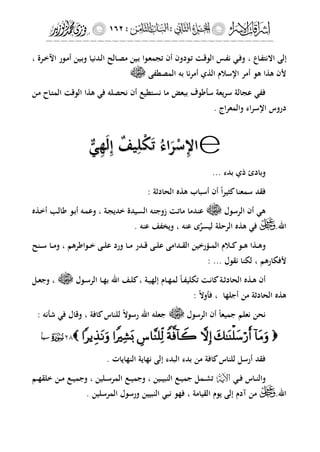 إشراقات الإسراء الجزء الثاني : البحث الثامن : ١٦٢
إلى الانتفاع ، وفي نفس الوقت تودون أن تجمعوا بين مصالح الدنيا وبين أمور الآخرة ،
لأن هذا هو أمر الإسلام الذي أمرنا به المصطفى ﷺ
ففي عجالة سريعة سأطوف ببعض ما نستطيع أن نحصله في هذا الوقت المتاح من
دروس الإسراء والمعراج .
الإِسْرَاءُ تَكْلِيفٌ إِلَهِيٌّ
وبادئ ذي بدء ...
فقد سمعنا كثيراً أن أسباب هذه الحادثة :
هي أن الرسول ﷺ عندما ماتت زوجته السيدة خديجة ، وعمه أبو طالب أخذه
الله ﷻ في هذه الرحلة ليسرِّى عنه ، ويخفف عنه .
وهذا هو كلام المؤرخين القدامى على قدر ما ورد على خواطرهم ، وما سنح
لأفكارهم ، لكنا نقول ... :
أن هذه الحادثة كانت تكليفاً لمهام إلهية ، كلف الله بها الرسول ﷺ ، وجعل
هذه الحادثة من أجلها ، فأولاً :
نحن نعلم جميعاً أن الرسول ﷺ جعله الله رسولاً للناس كافة ، وقال في شأنه :
﴿ وَمَآ أَرْسَلْنَٰكَ إِلَّا كَآفَّةً لِّلنَّاسِ بَشِيرًا وَنَذِيرًا ﴾ ٢٨ سبأ
فقد أرسل للناس كافة من بدء البدء إلى نهاية النهايات .
والناس في تشمل جميع النبيين ، وجميع المرسلين ، وجميع من خلقهم
الله ﷻ من آدم إلى يوم القيامة ، فهو نبي النبيين ورسول المرسلين .